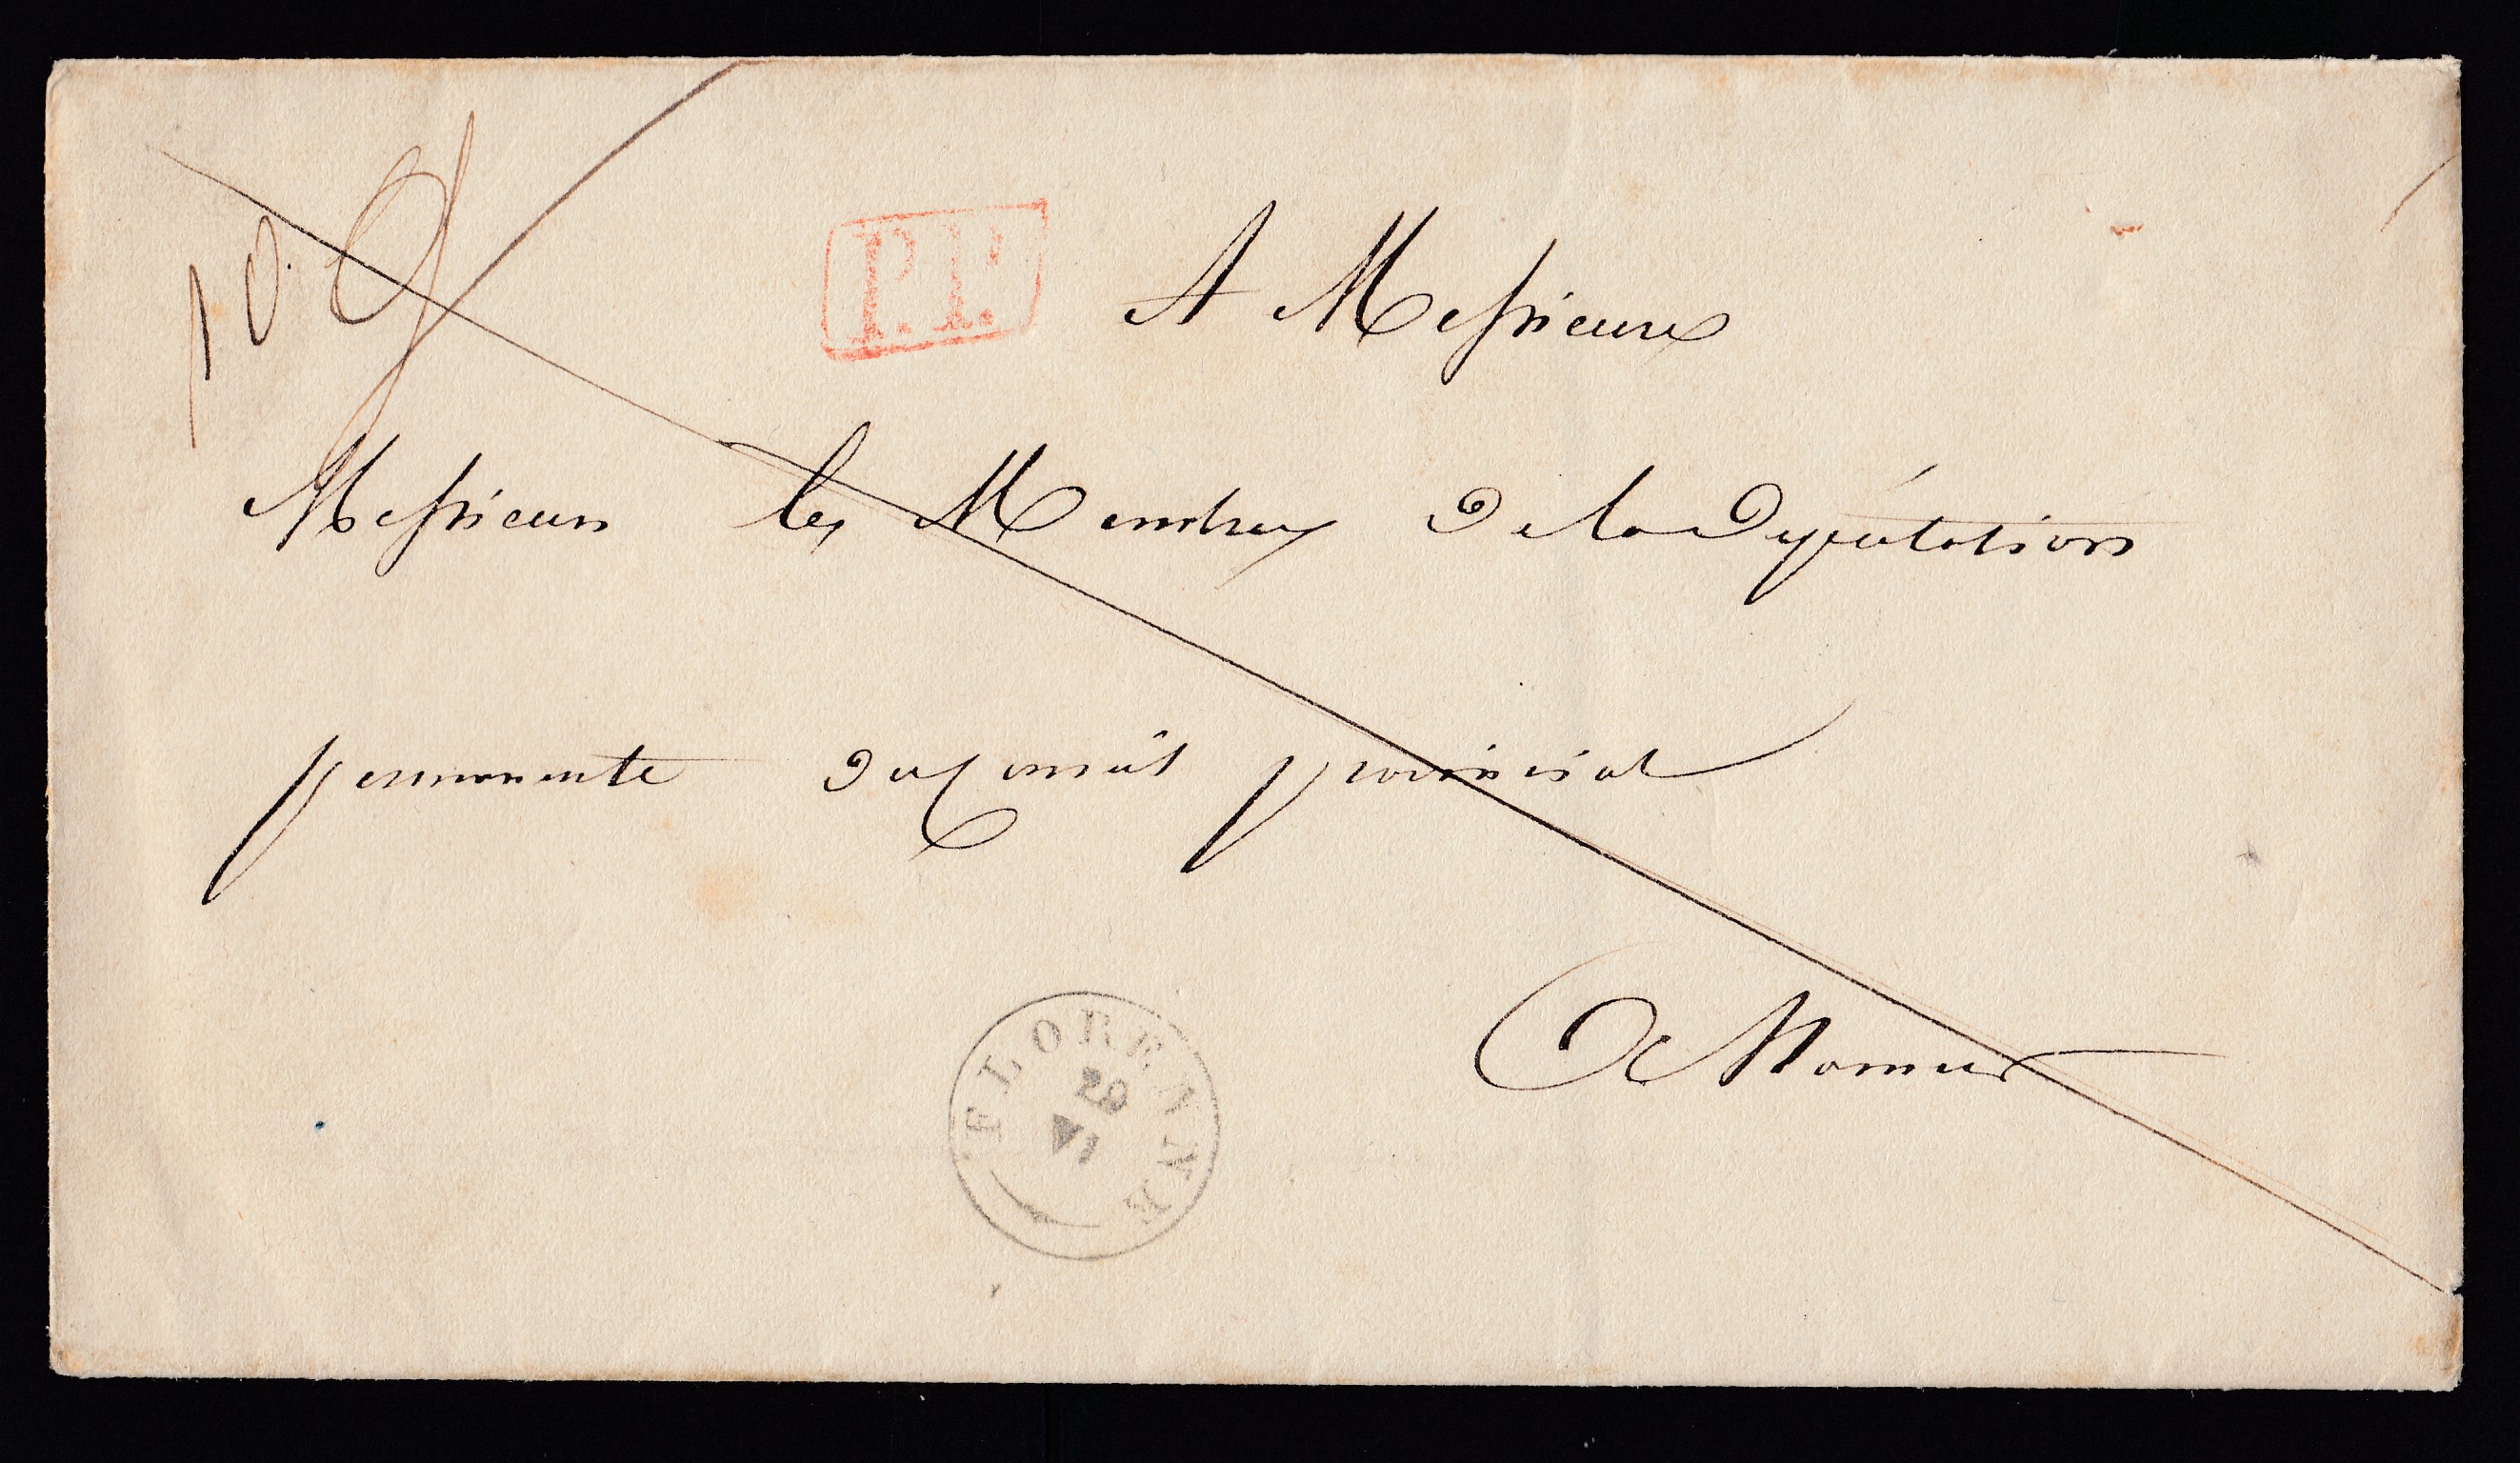 10 g
P.F.
A Messieurs
Messieurs les Membres De la Députation
permanente du Conseil provincial
A Namur
FLORENNE
29
VI